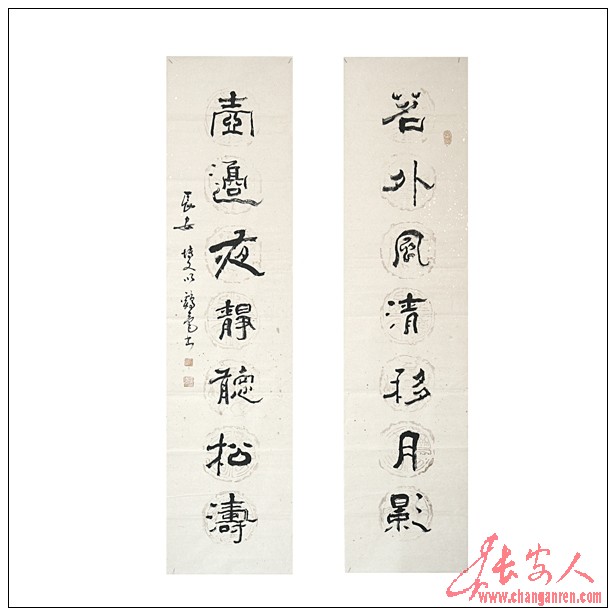 茗外風清移月影
壺邊夜靜聽松濤
長安
长安人
www.changanren.com